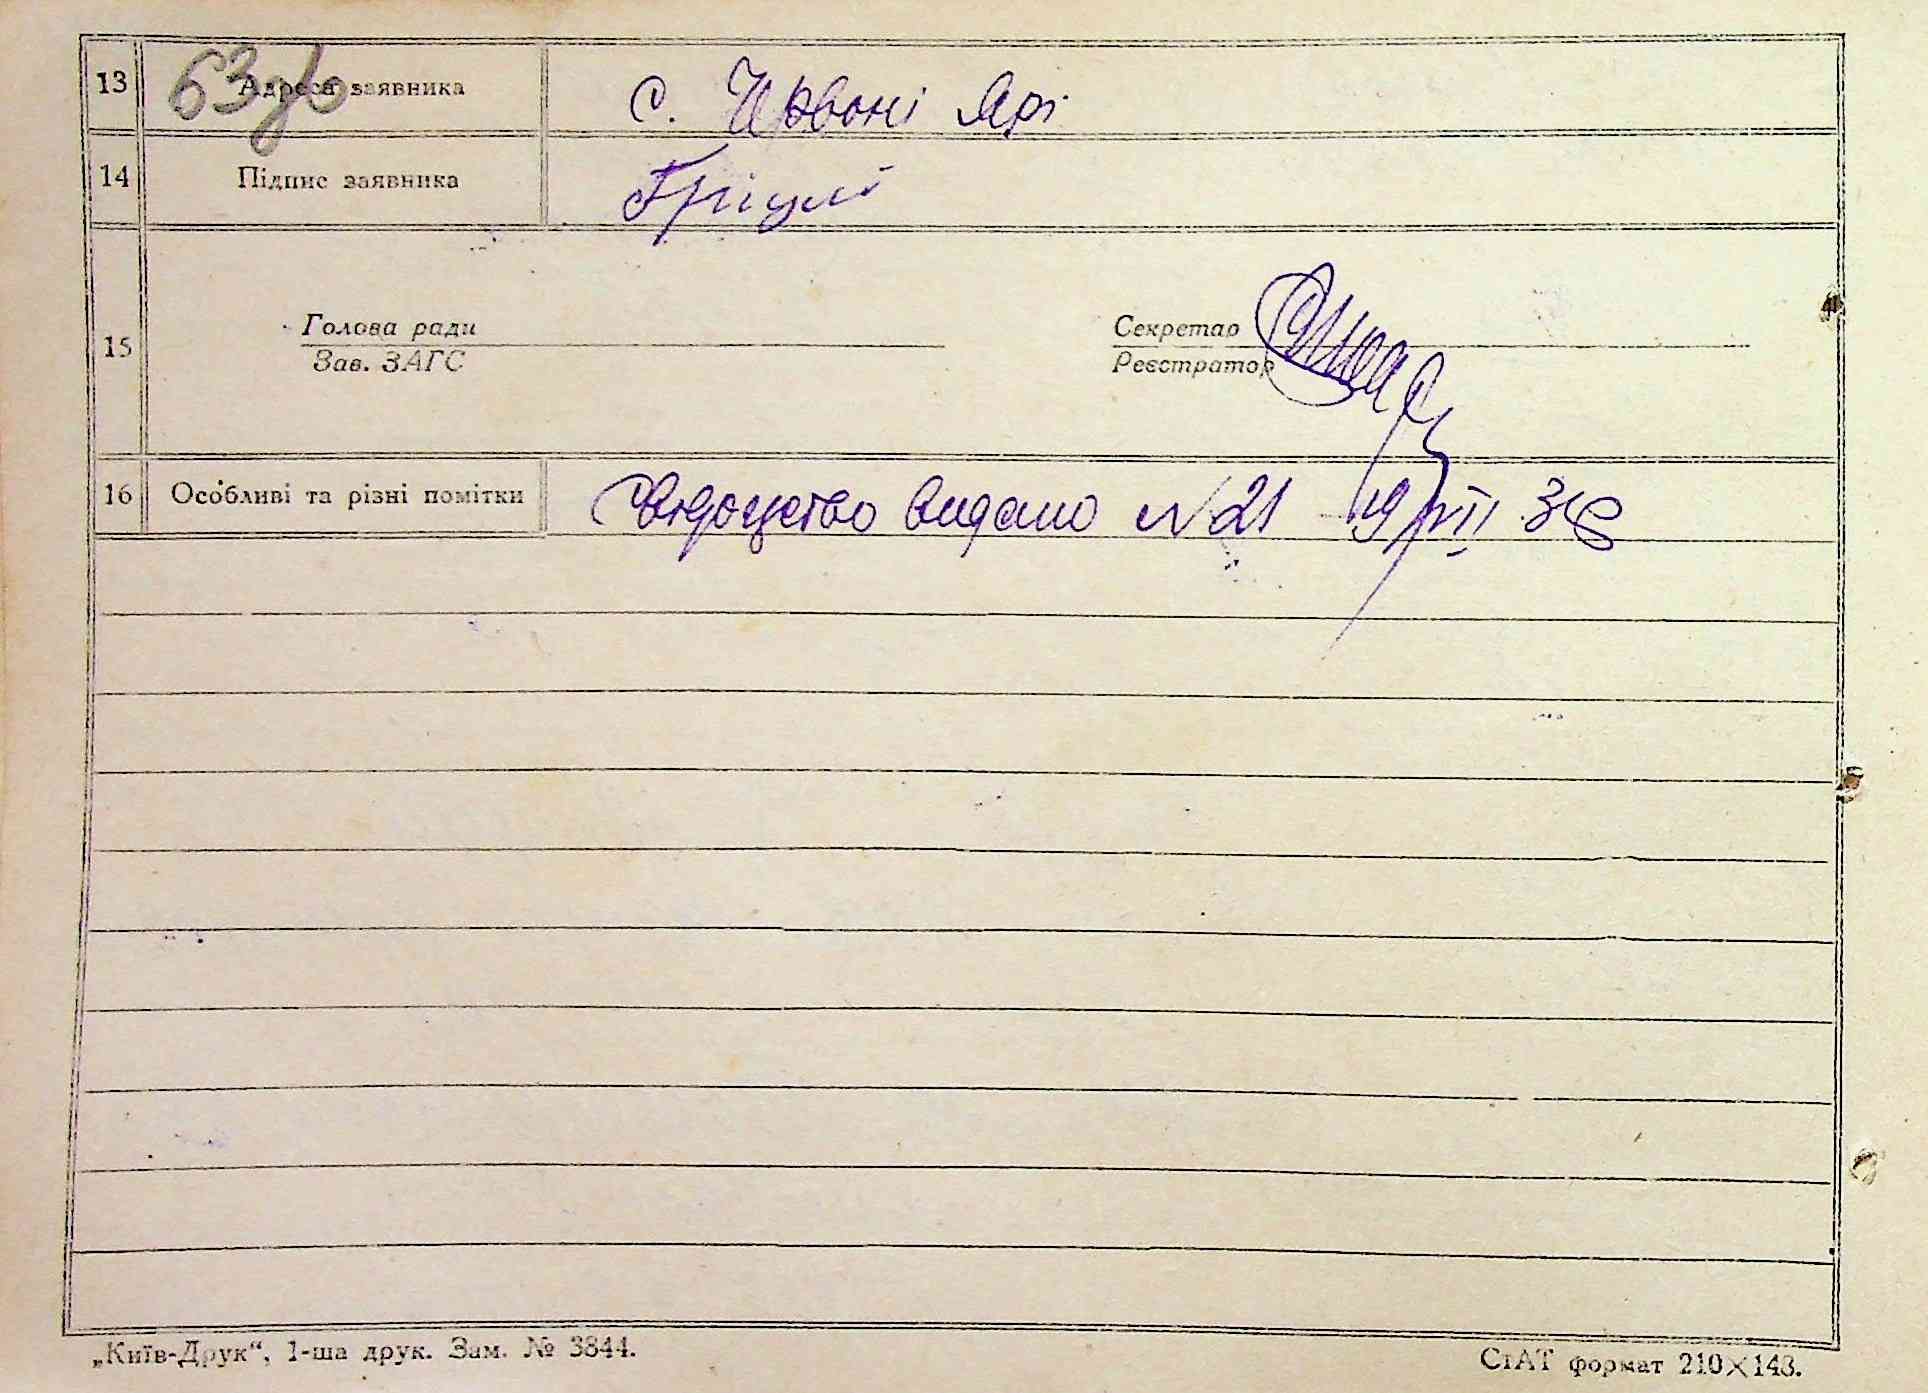 63 зв
13 Адреса заявника с. Червоні Ярі
14 Підпис заявника
15 Голова ради Секретар
Зав. ЗАГС Реєстратор
16 Особливі та різні помітки Свідоцтво видано №21 19/VII 38
„Київ-Друк“, 1-ша друк. Зам. № 3844.
СтАТ формат 210×148.